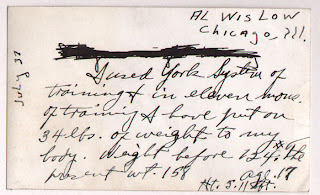 AL WISLOW
Chicago, Ill.
July 37
I used York System of
training & in eleven mons.
of training I have put on
34 lbs. of weight to my
body. Weight before 124. The
present wt. 158 age. 17
Ht. 5.11